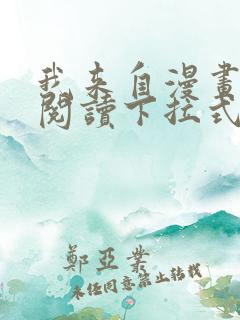 我来自漫畫
閱讀下拉式
鄭亞業
未经同意禁止转载